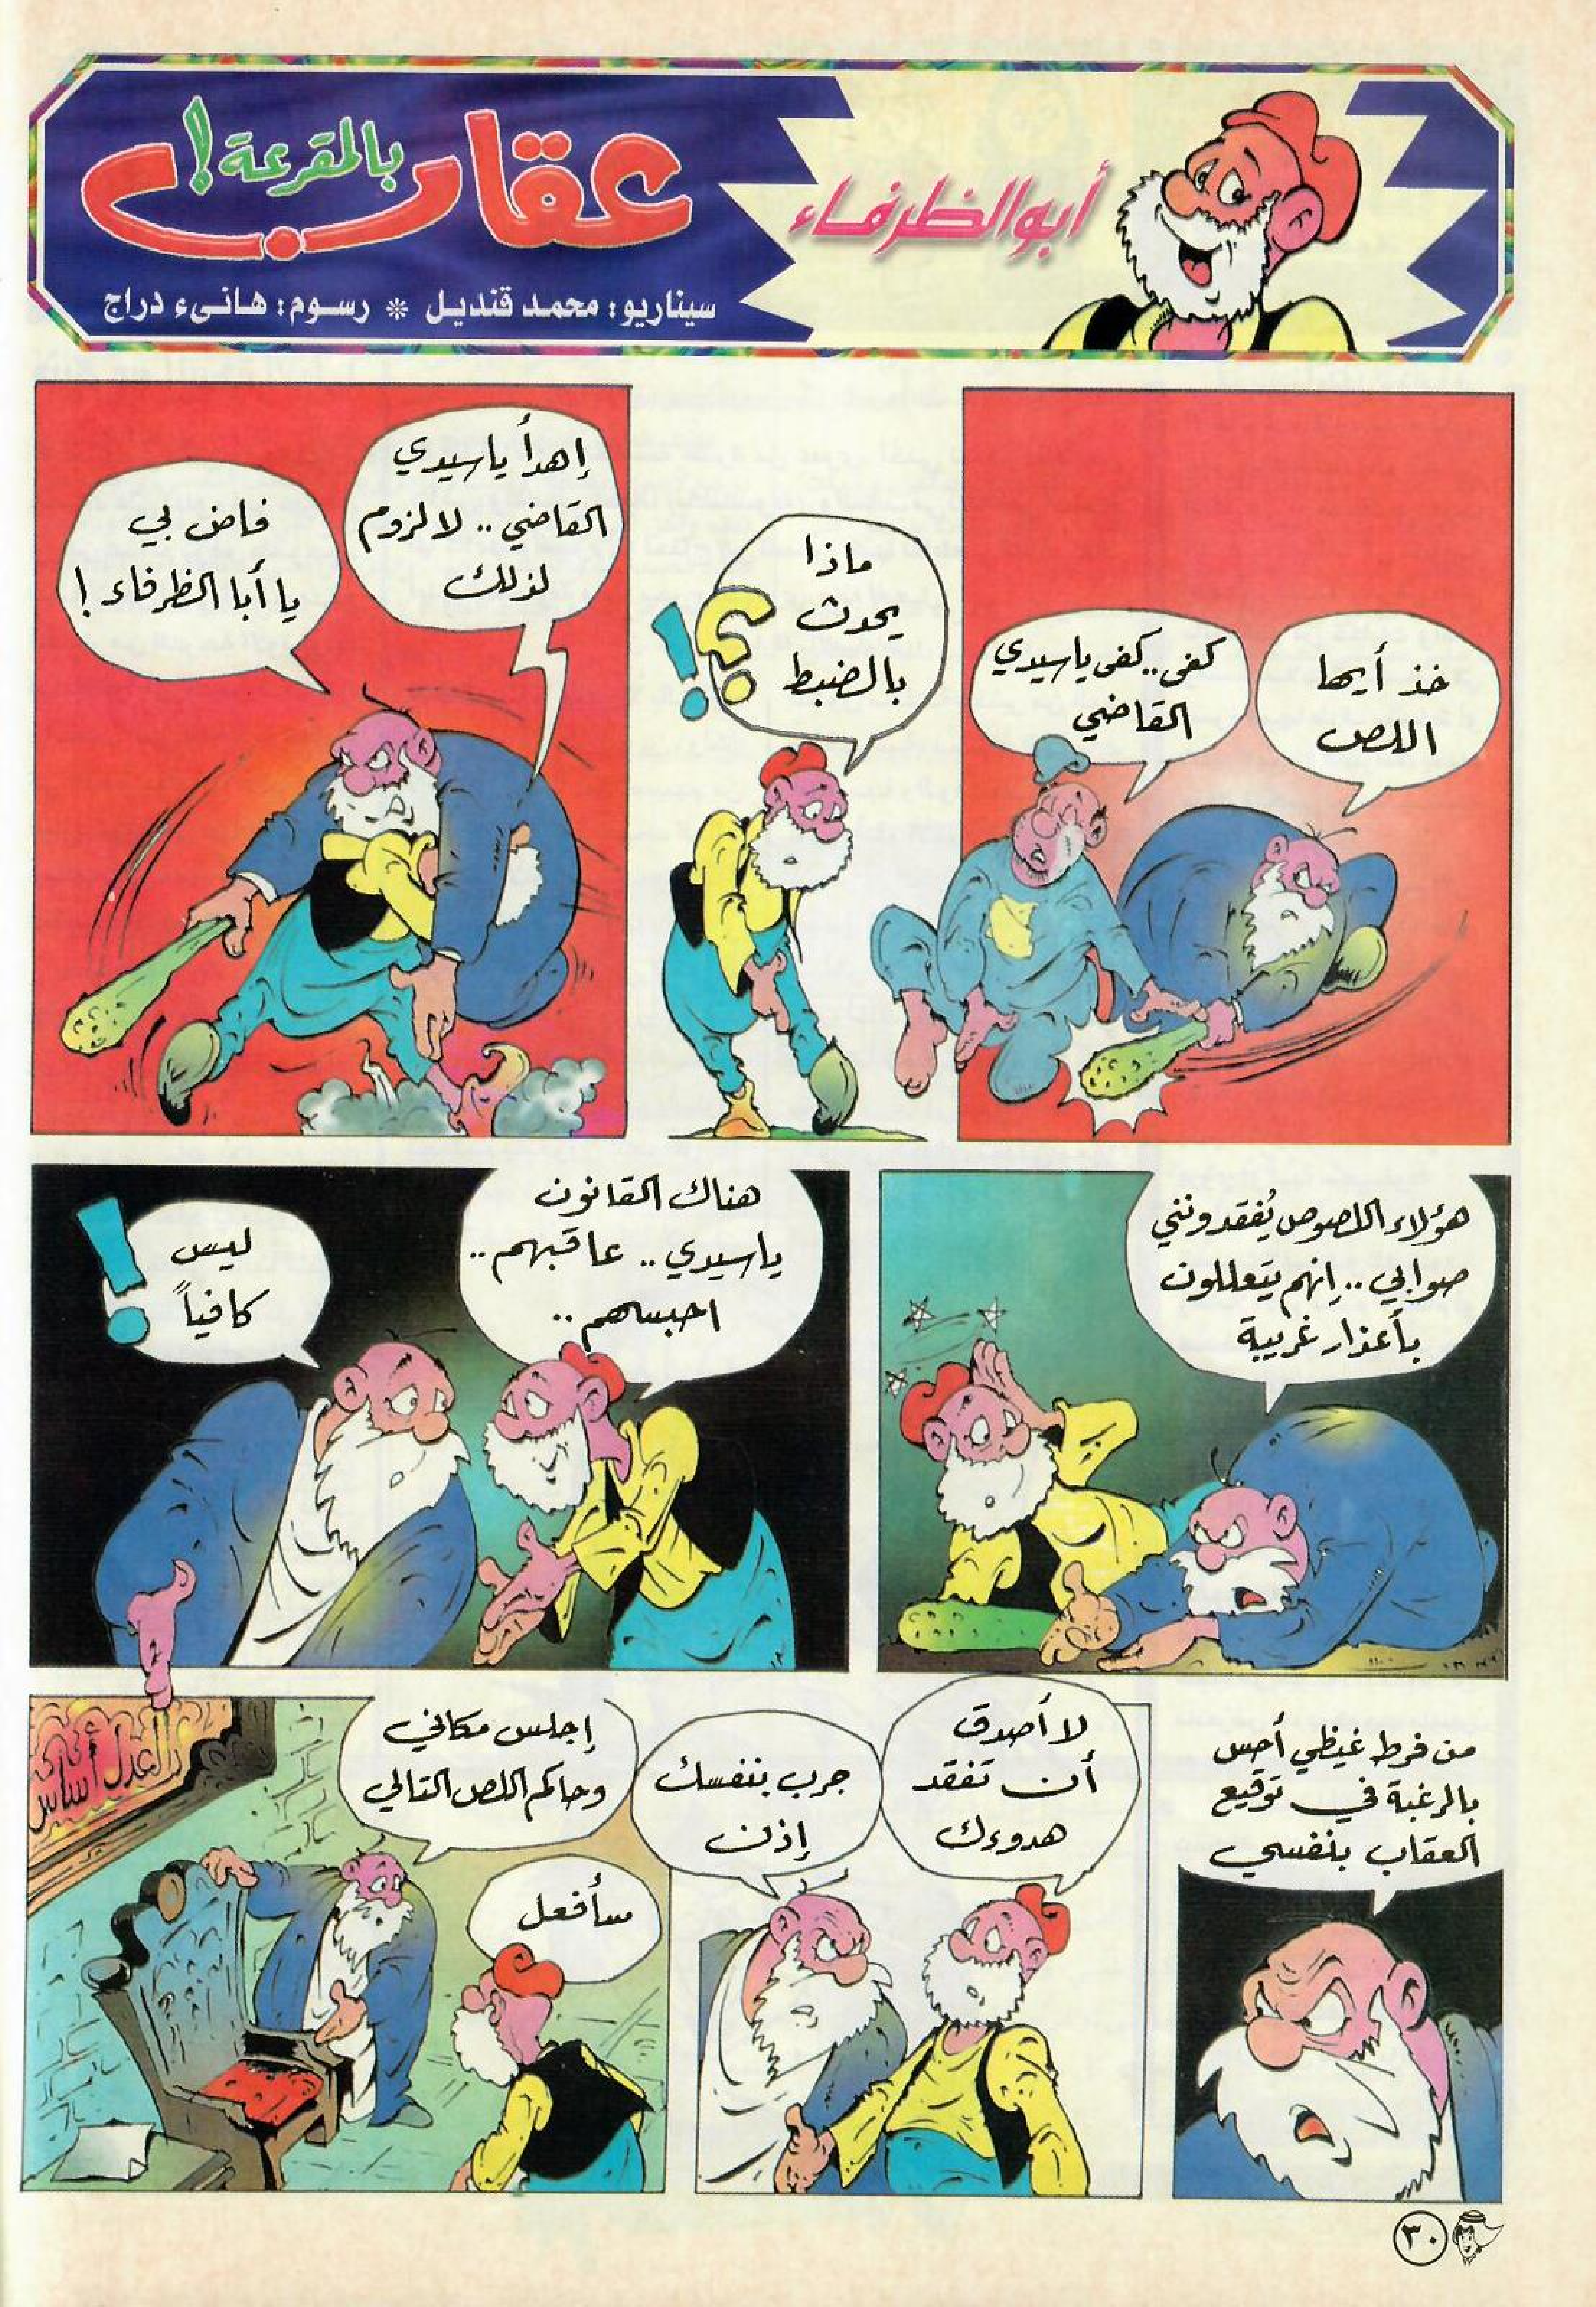 أبو الظرفاء
عقاب
بالمقرعة!
سيناريو: محمد قنديل * رسوم: هانىء دراج
خذ أيها
اللص
كفى.. كفى ياسيدي
القاضي
ماذا
يحدث
بالضبط
؟!
إهدأ ياسيدي
القاضي.. لا لزوم
لذلك
فاض بي
يا أبا الظرفاء!
هؤلاء اللصوص يُفقدونني
صوابي.. إنهم يتعللون
بأعذار غريبة
هناك القانون
ياسيدي.. عاقبهم..
احبسهم..
ليس
كافياً
!
من فرط غيظي أحس
بالرغبة في توقيع
العقاب بنفسي
لا أصدق
أن تفقد
هدوءك
جرب بنفسك
إذن
إجلس مكاني
وحاكم اللص التالي
سأفعل
العدل أساس
٣٠